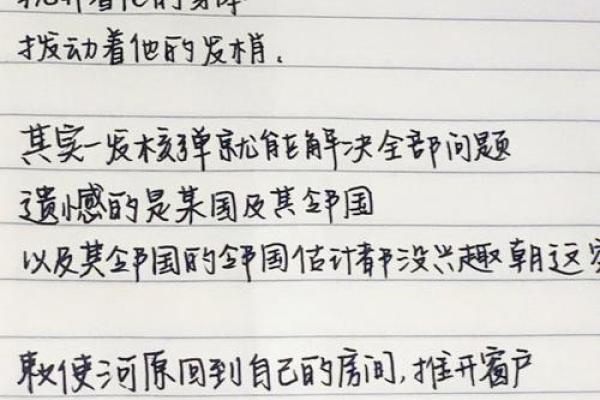 拨动着他的发梢。
其实一发核弹就能解决全部问题
遗憾的是某国及其邻国
以及其邻国的邻国估计都没兴趣朝这
敕使河原回到自己的房间,推开窗户